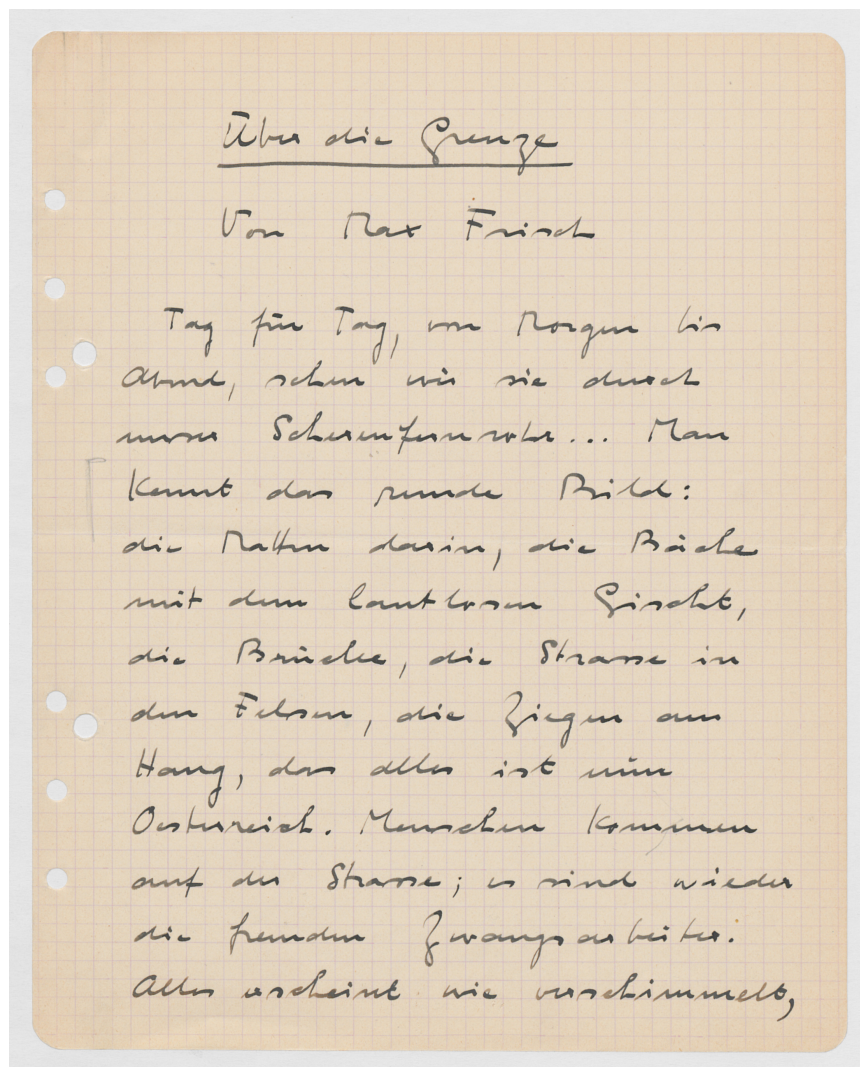 Über die Grenze
Von Max Frisch
Tag für Tag, von Morgen bis
Abend, sehen wir sie durch
unser Scherenfernrohr... Man
kennt das runde Bild:
die Matten darin, die Bäche
mit dem lautlosen Gischt,
die Brücke, die Strasse in
den Felsen, die Ziegen am
Hang, das alles ist nun
Oesterreich. Menschen kommen
auf der Strasse; es sind wieder
die fremden Zwangsarbeiter.
Alles erscheint wie verschimmelt,